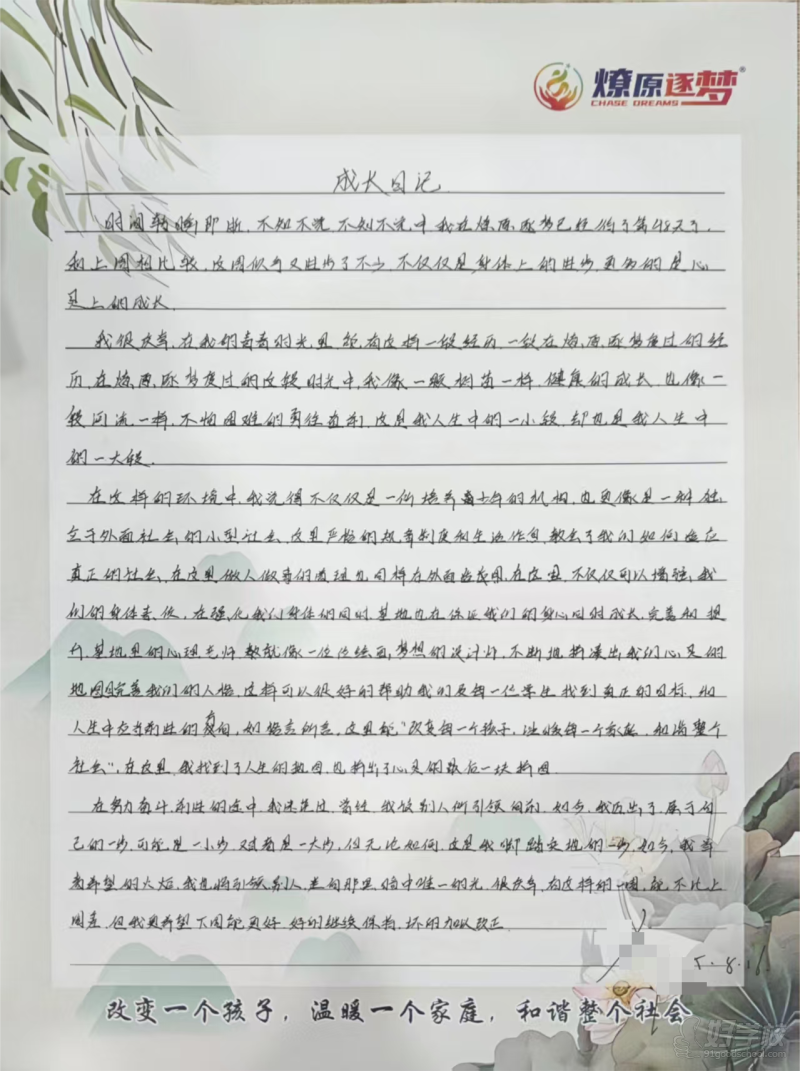 燎原逐梦®
CHASE DREAMS
成长日记
时间转瞬即逝,不知不觉,不知不觉中我在燎原逐梦已经待了第45天了,
和上周相比较,这周似乎又进步了不少,不仅仅是身体上的进步,更多的是心
灵上的成长.
我很庆幸,在我的青春时光里,能有这样一段经历,一段在燎原逐梦度过的经
历,在燎原逐梦度过的这段时光中,我像一颗树苗一样,健康的成长,也像一
段河流一样,不怕困难的勇往直前,这是我人生中的一小段,却也是我人生中
的一大段.
在这样的环境中,我觉得不仅仅是一所培养青少年的机构,也更像是一种独
立于外面社会的小型社会,这里严格的规章制度和生活作息,教会了我们如何适应
真正的社会,在这里做人做事的道理也同样在外面适用,在这里,不仅仅可以增强我
们的身体素质,在强化我们身体的同时,基地也在保证我们的身心同时成长,完善和提
升,基地里的心理老师就像一位位绘画梦想的设计师,不断地拼凑出我们心灵的
地图完善我们的人格,这样可以很好的帮助我们及每一位学生找到真正的目标,和
人生中应当前进的方向,如标语所言,这里能"改变每一个孩子,温暖每一个家庭,和谐整个
社会",在这里,我找到了人生的地图,也拼出了心灵的最后一块拼图.
在努力奋斗,前进的途中,我迷茫过,曾经,我被别人所引领向前,如今,我迈出了属于自
己的一步,可能是一小步,又或者是一大步,但无论如何,这是我脚踏实地的一步,如今,我举
着希望的火炬,我也将引领别人,走向那黑暗中唯一的光,很庆幸,有这样的一周,能不比上
周差,但我更希望下周能更好,好的继续保持,坏的加以改正.
5.8.16
改变一个孩子，温暖一个家庭，和谐整个社会
好学校
91goodschool.com